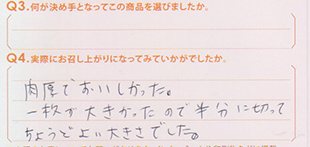 Q3.何が決め手となってこの商品を選びましたか。
Q4.実際にお召し上がりになってみていかがでしたか。
肉厚でおいしかった。
一枚が大きかったので半分に切って
ちょうどよい大きさでした。